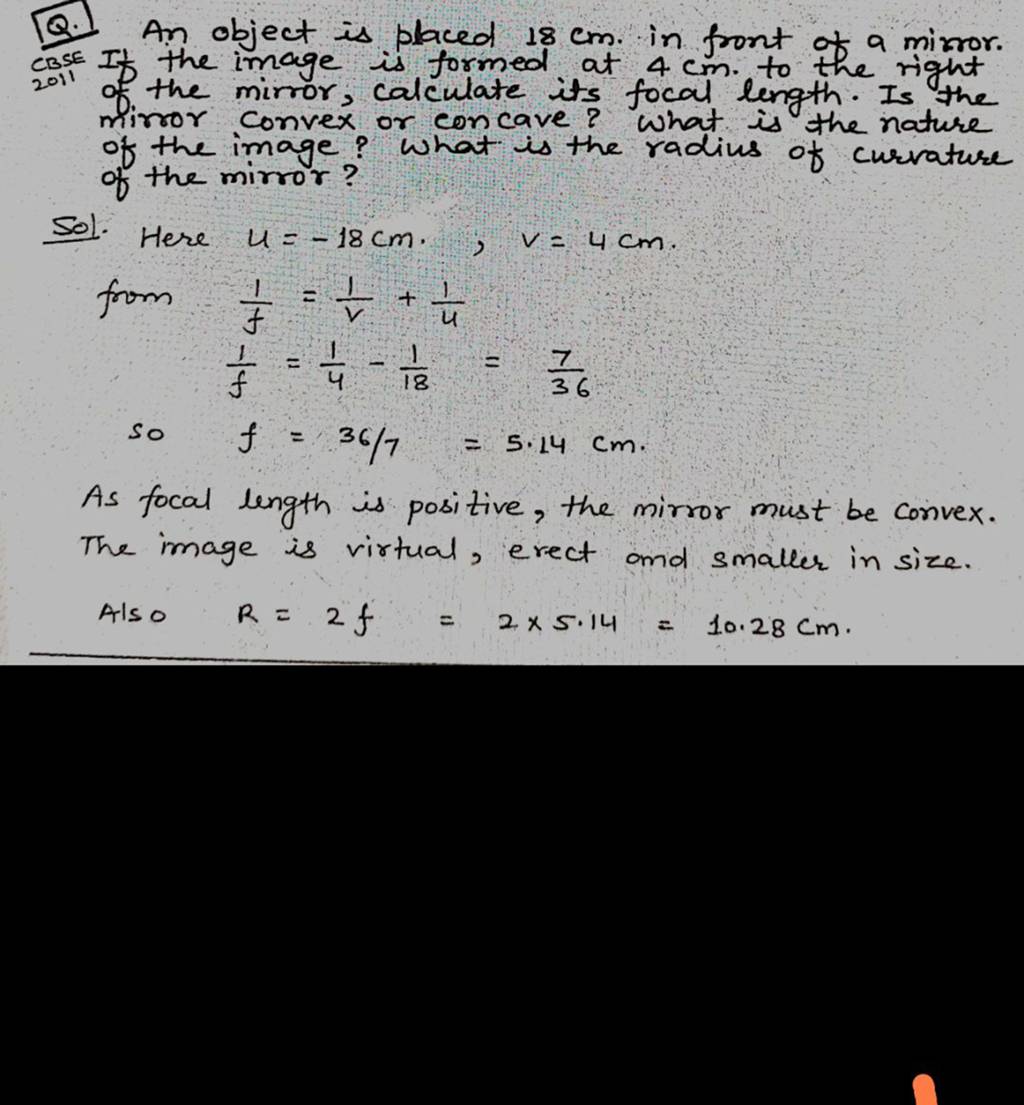 Q. An object is placed 18 cm. in front of a mirror.
CBSE 2011 If the image is formed at 4 cm. to the right
of the mirror, calculate its focal length. Is the
mirror convex or concave? What is the nature
of the image? What is the radius of curvature
of the mirror?
Sol. Here u = - 18 cm. , v = 4 cm.
from 1/f = 1/v + 1/u
1/f = 1/4 - 1/18 = 7/36
so f = 36/7 = 5.14 cm.
As focal length is positive, the mirror must be convex.
The image is virtual, erect and smaller in size.
Also R = 2f = 2 x 5.14 = 10.28 cm.